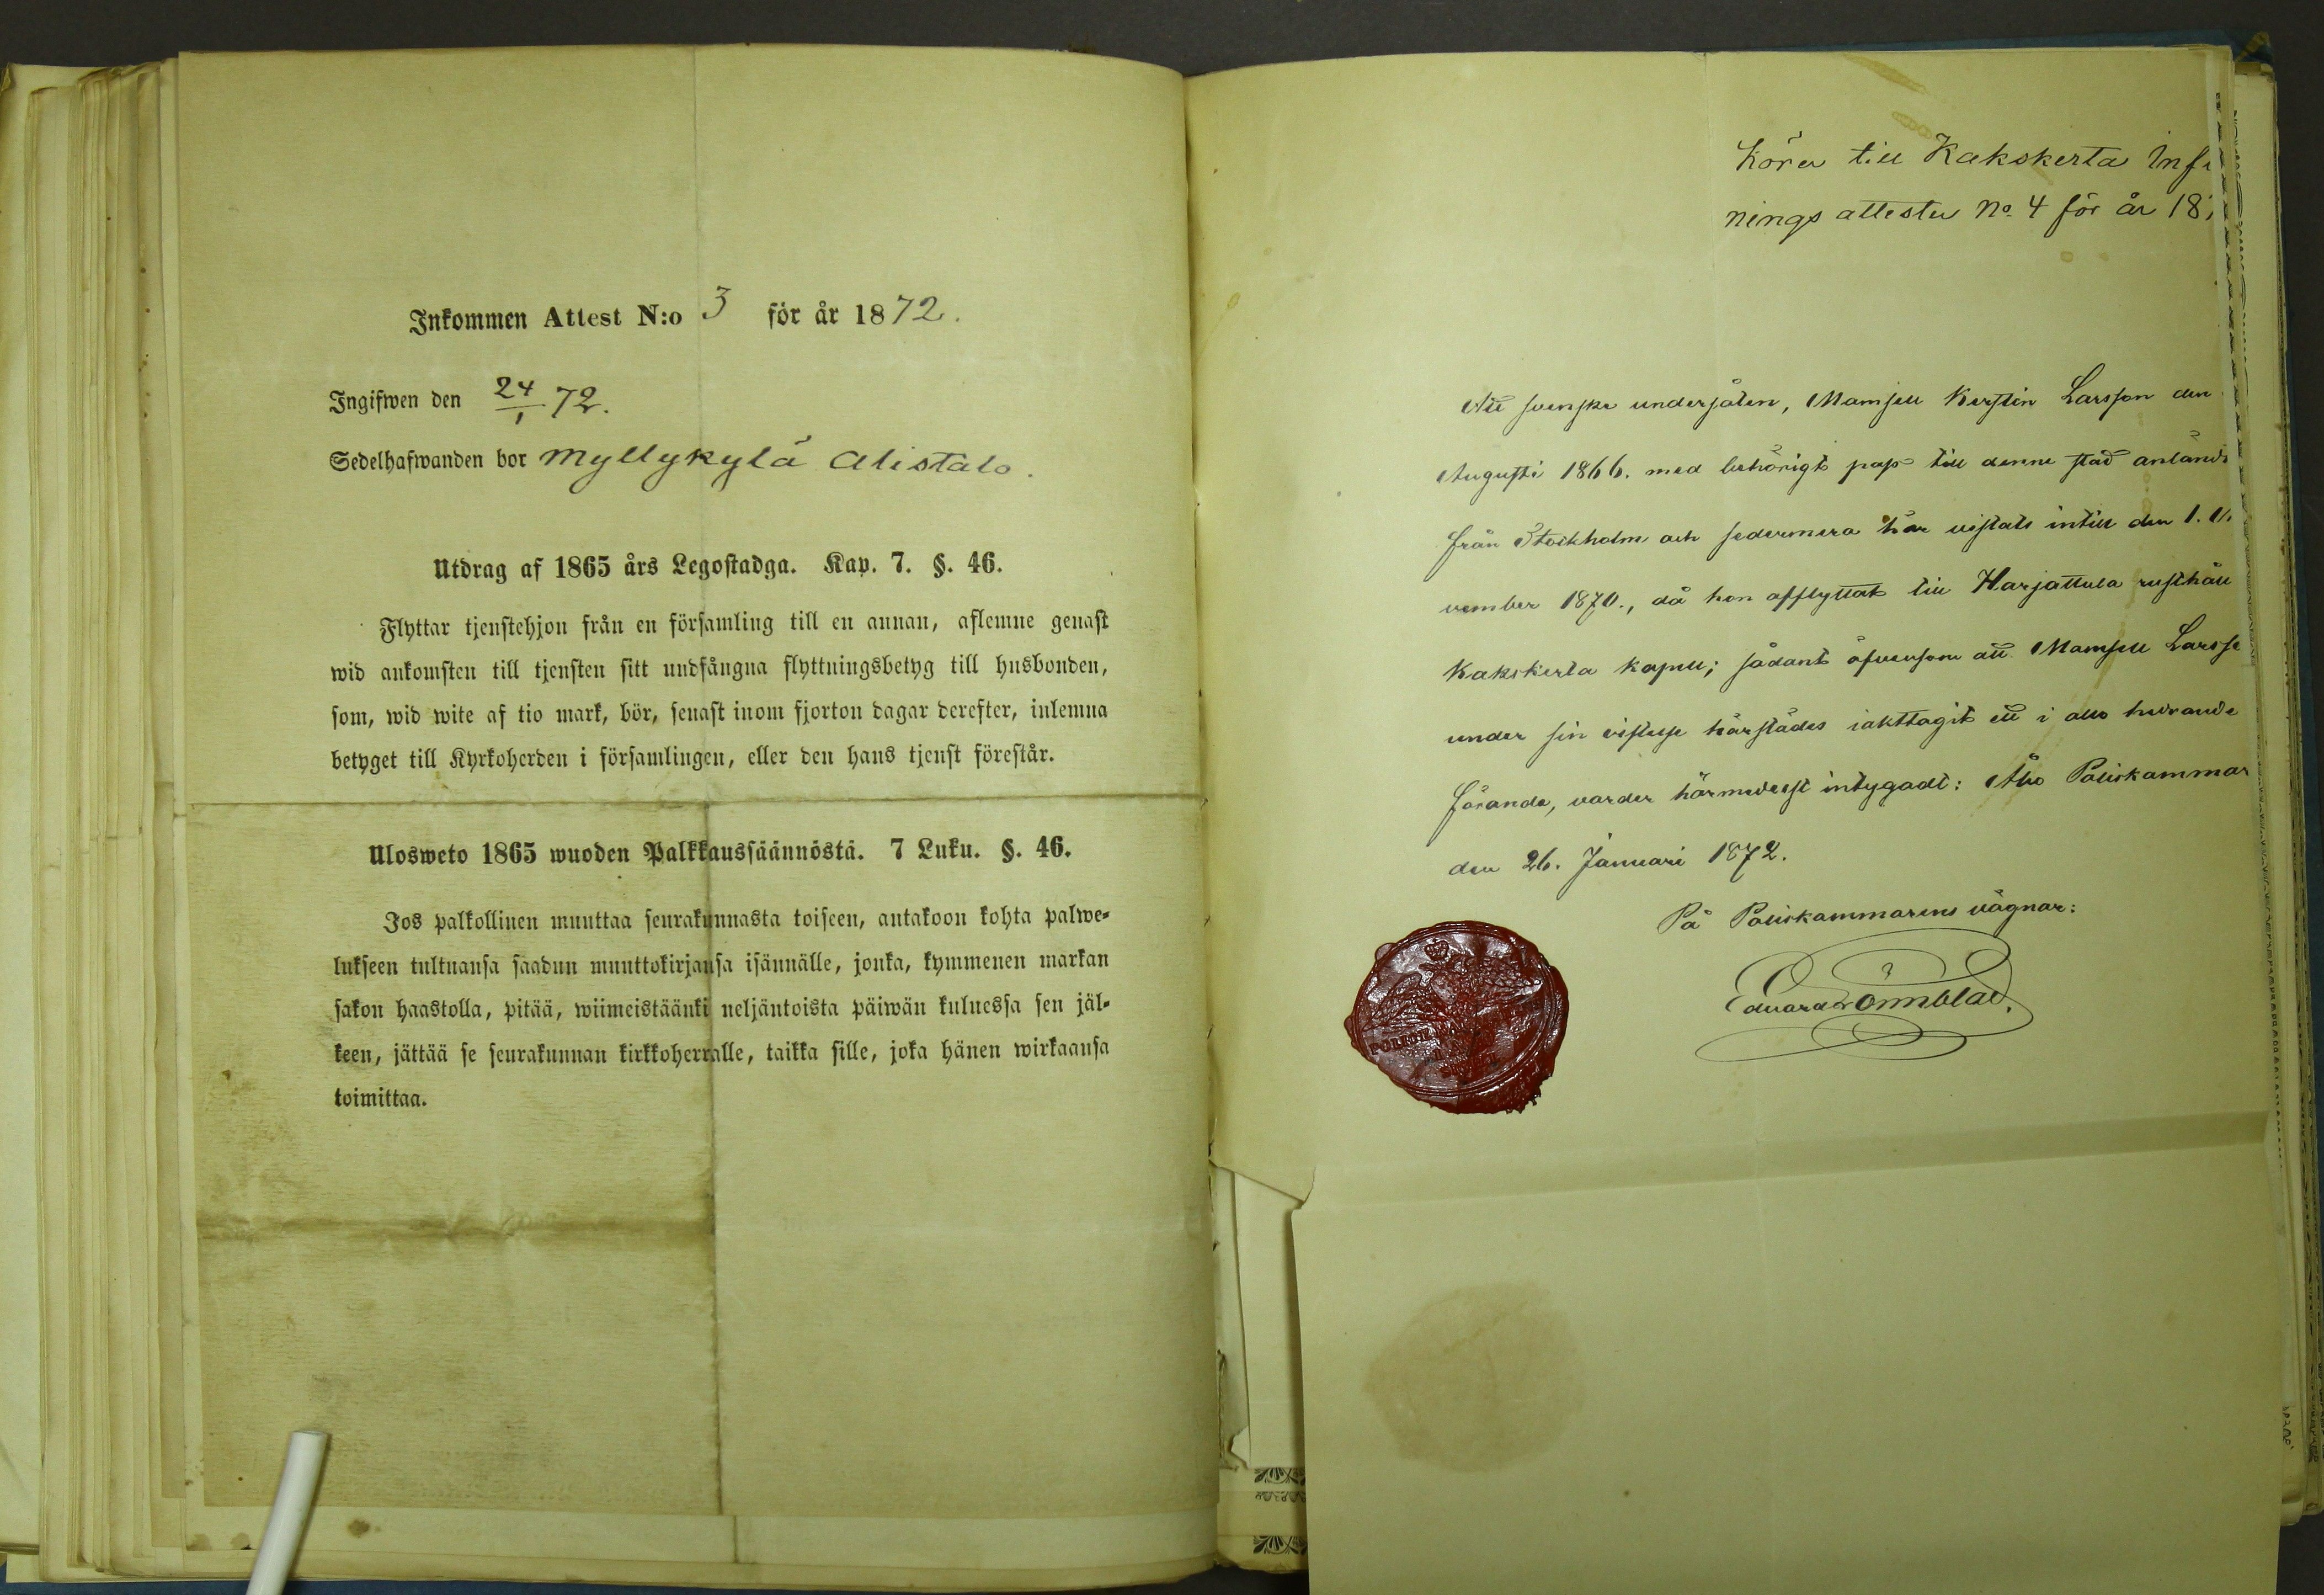 Inkommen Attest N:o 3 för år 1872.
Ingifwen den 24/1 72.
Sedelhafwanden bor Myllykylä Alistalo.
Utdrag af 1865 års Legostadga. Kap. 7. §. 46.
Flyttar tjenstehjon från en församling till en annan, aflemne genast
wid ankomsten till tjensten sitt undfångna flyttningsbetyg till husbonden,
som, wid wite af tio mark, bör, senast inom fjorton dagar derefter, inlemna
betyget till Kyrkoherden i församlingen, eller den hans tjenst förestår.
Ulosweto 1865 wuoden Palkkaussäännöstä. 7 Luku. §. 46.
Jos palkollinen muuttaa seurakunnasta toiseen, antakoon kohta palwe-
lukseen tultuansa saadun muuttokirjansa isännälle, jonka, kymmenen markan
sakon haastolla, pitää, wiimeistäänki neljäntoista päiwän kuluessa sen jäl-
keen, jättää se seurakunnan kirkkoherralle, taikka sille, joka hänen wirkaansa
toimittaa.
höra till Kakskerta Infl
nings attester No. 4 för år 18
Att svenske undersåten, Mamsell Kerstin Larsson den
Augusti 1866. med behörigt pass till denne stad anländt
från Stockholm och sedermera här vistats intill den 1.
vember 1870., då hon afflyttat till Harjattula rusthåll
Kakskerta kapell; sådant äfvensom att Mamsell Larsso
under sin vistelse härstädes iakttagit ett i allo hedrande
förande, varder härmedelst intygadt: Åbo Poliskammar
den 26. Januari 1872.
På Poliskammarens vägnar:
Eduard Lönnblad.